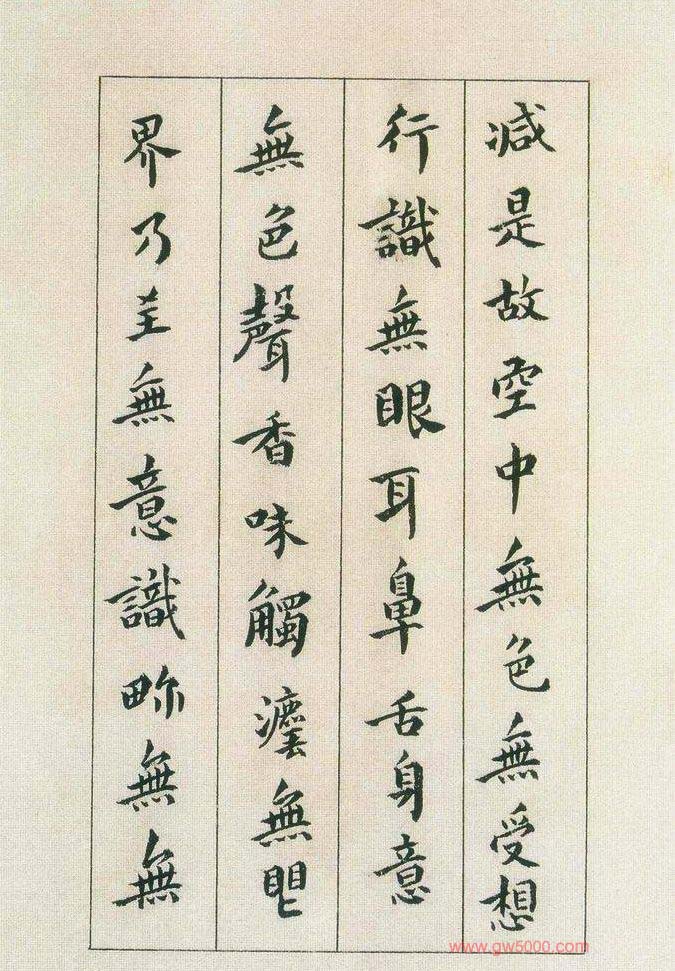 減是故空中無色無受想
行識無眼耳鼻舌身意
無色聲香味觸灋無
界乃至無意識畍無無
www.gw5000.com